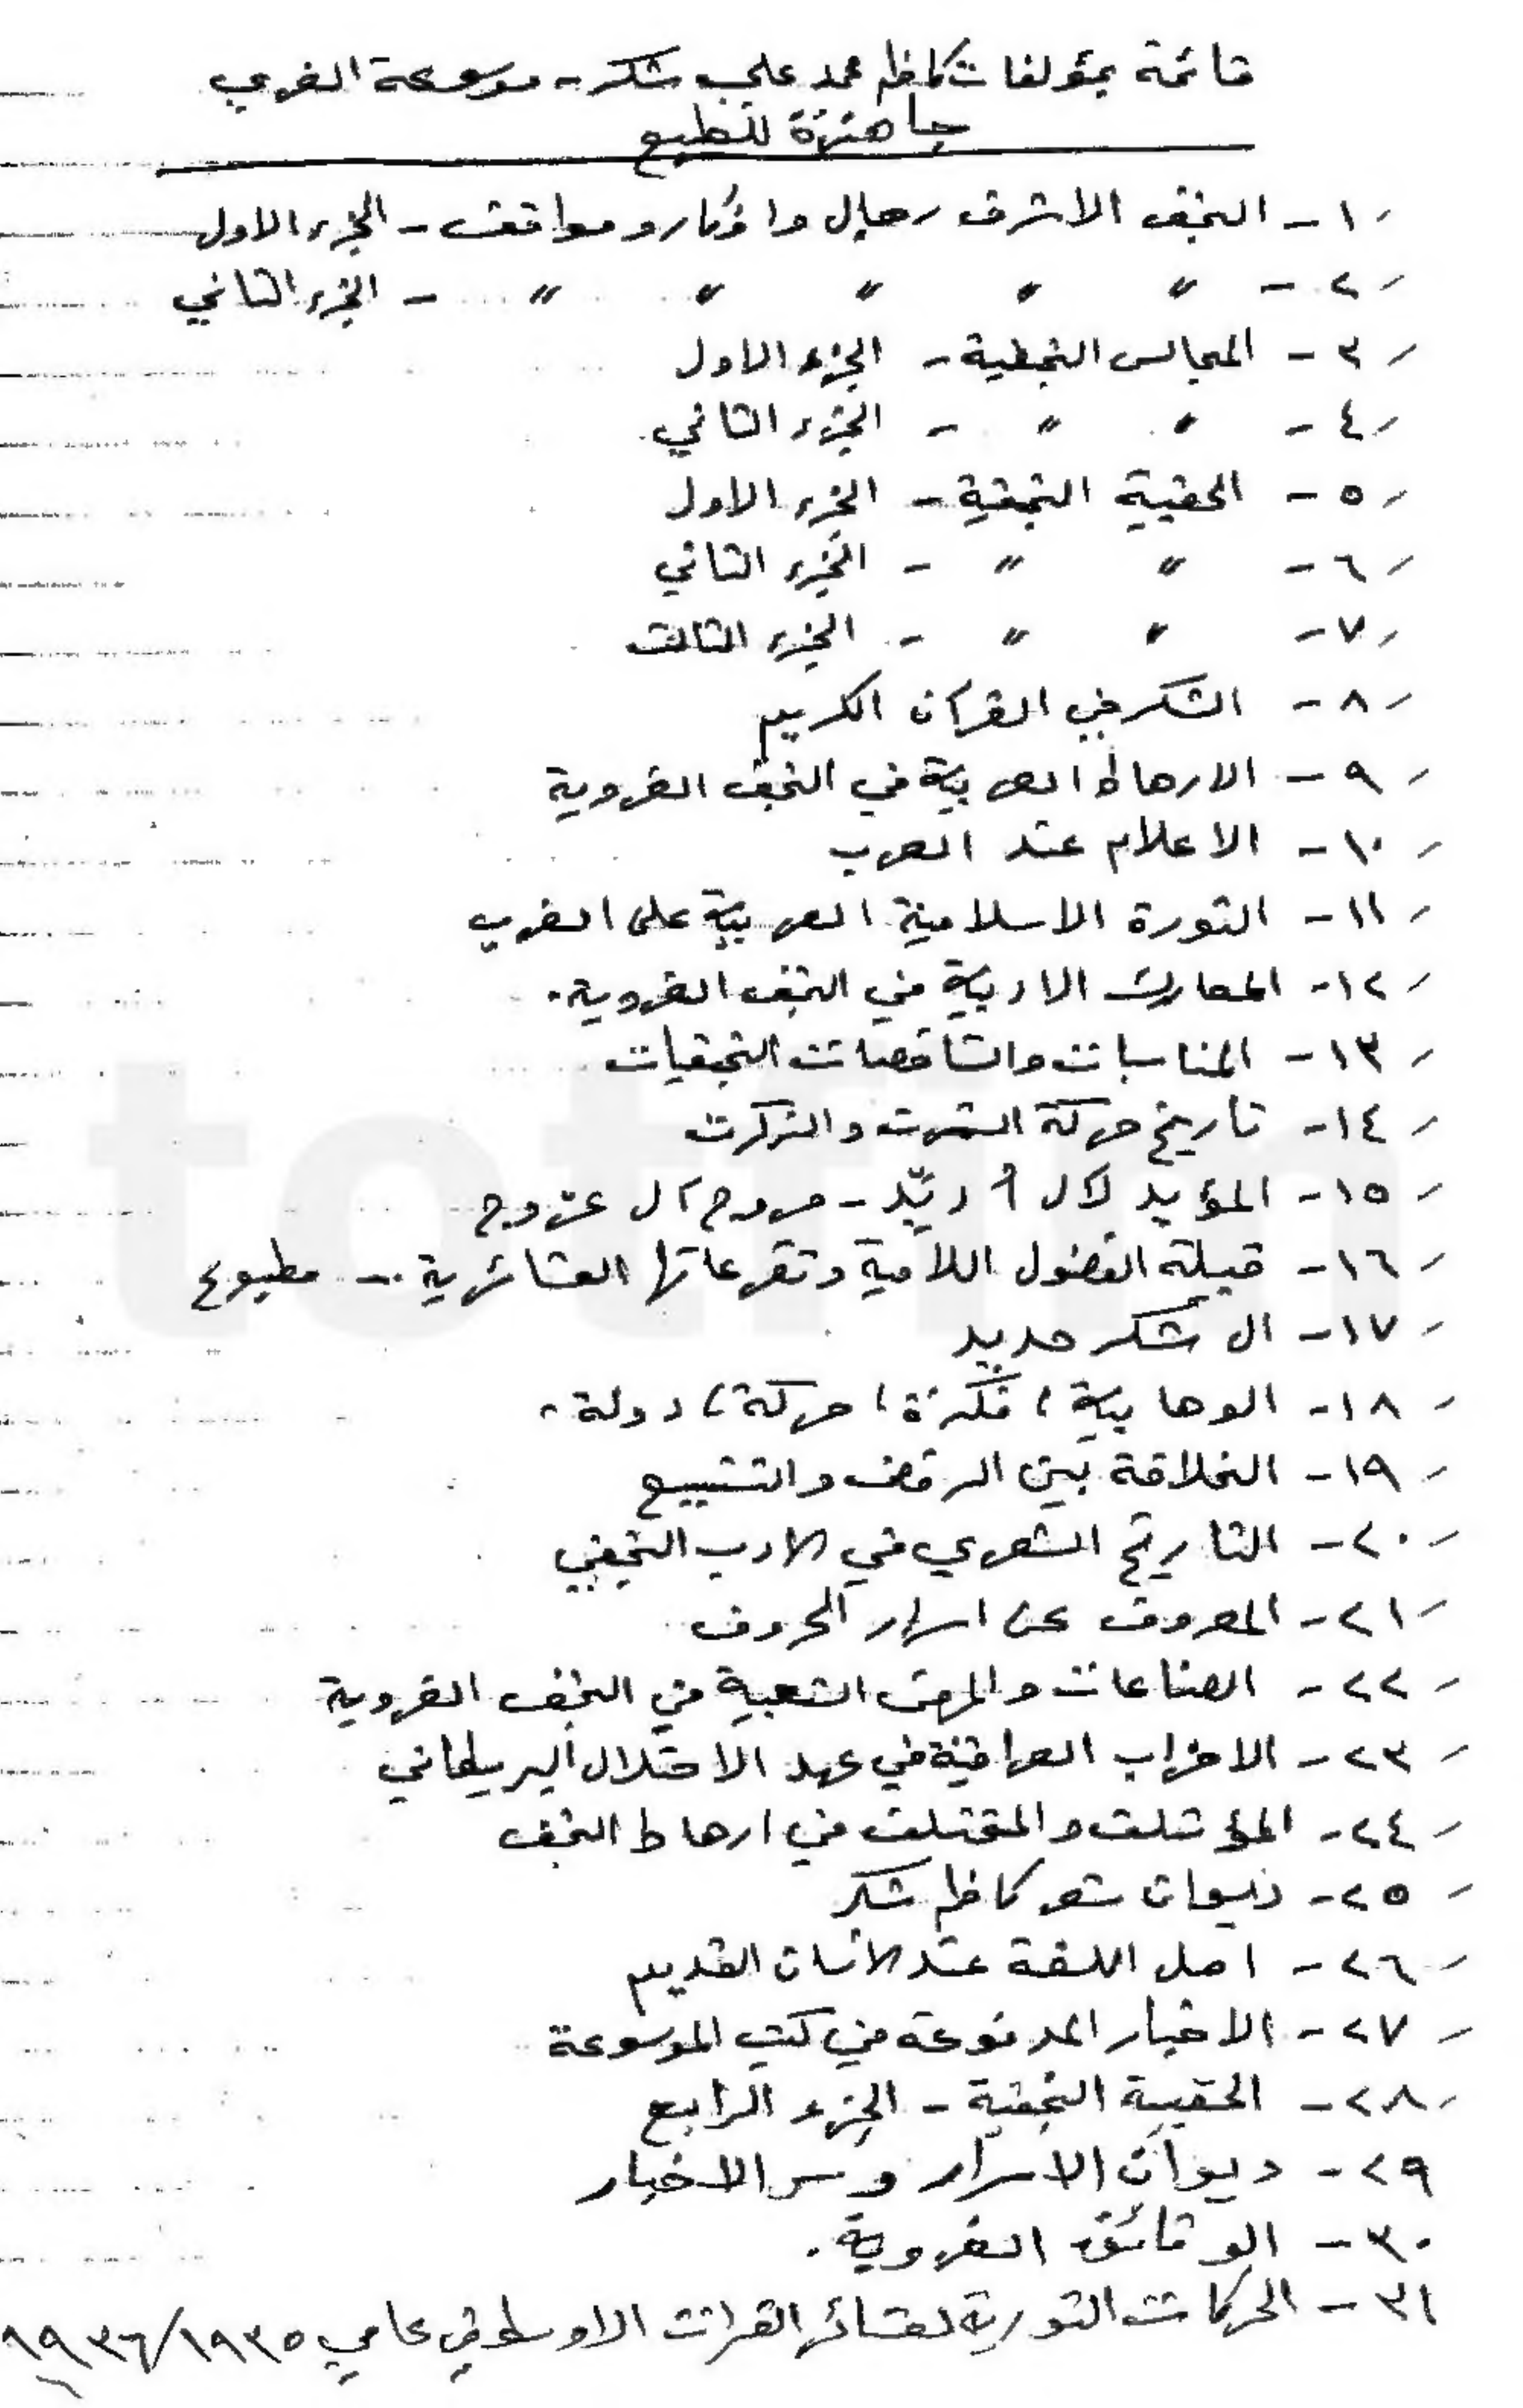 قائمة بمؤلفات كاظم محمد علي شكر - موسوعة الغري
جاهزة للطبع
١- النجف الاشرف رجال وافكار ومواقف - الجزء الاول
٢- " " " " " - الجزء الثاني
٣- المجالس النجفية - الجزء الاول
٤- " " - الجزء الثاني
٥- الحقيبة النجفية - الجزء الاول
٦- " " - الجزء الثاني
٧- " " - الجزء الثالث
٨- الشكر في القرآن الكريم
٩- الارهاط العربية في النجف الغروية
١٠- الاعلام عند العرب
١١- الثورة الاسلامية العربية على الغرب
١٢- المعارك الادبية في النجف الغروية.
١٣- المناسبات والتناقضات النجفيات
١٤- تأريخ حركة الشمرت والزكرت
١٥- المؤيد لآل أديّد - مروح آل عزوح
١٦- قبيلة الفضول اللامية وتفرعاتها العشائرية - مطبوع
١٧- ال شكر حديد
١٨- الوهابية، فكرة، حركة، دولة.
١٩- الخلافة بين الرفض والتشييع
٢٠- التاريخ الشعري في الادب النجفي
٢١- المعروف عن اسرار الحروف
٢٢- الصناعات والمهن الشعبية في النجف الغروية
٢٣- الاحزاب العراقية في عهد الاحتلال البريطاني
٢٤- المؤتلف والمختلف في ارهاط النجف
٢٥- ديوان شعر كاظم شكر
٢٦- اصل اللغة عند الانسان القديم
٢٧- الاخبار المدفوعة في كتب الموسوعة
٢٨- الحقيبة النجفية - الجزء الرابع
٢٩- ديوان الاسرار وسر الاخبار
٣٠- الوثائق الغروية.
٣١- الحركات الثورية لعشائر الفرات الاوسط في عامي ١٩٣٥/١٩٣٦
totfim